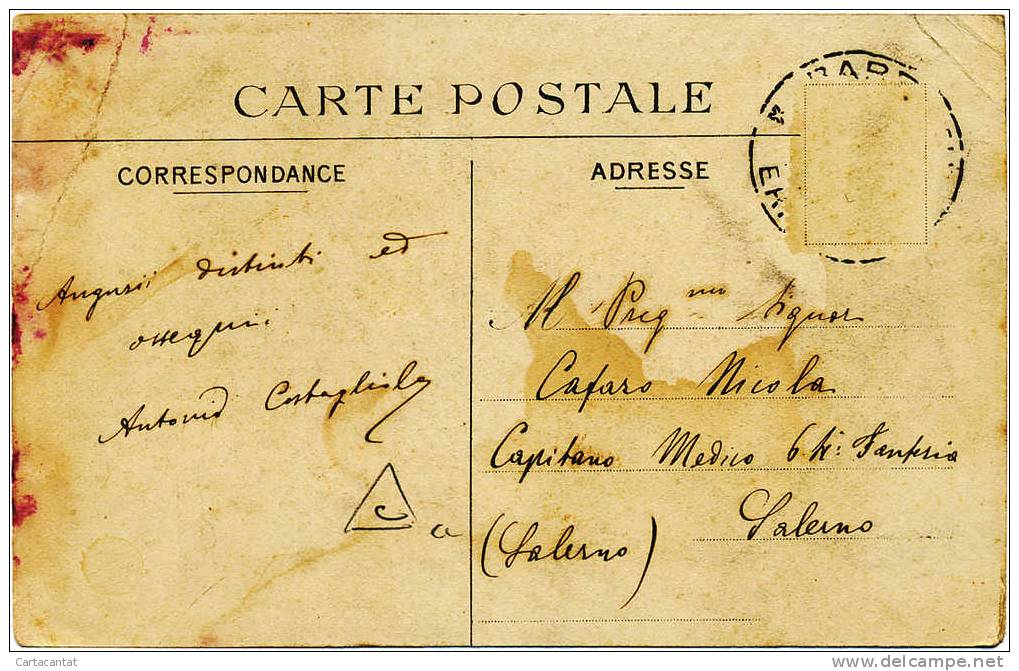 CARTE POSTALE
CORRESPONDANCE
ADRESSE
Augurii distinti ed
ossequii
Antonio Costagliola
c
Al Preg mo Signor
Cafaro Nicola
Capitano Medico Fanteria
Salerno
(Salerno)
Cartacantat
www.delcampe.net